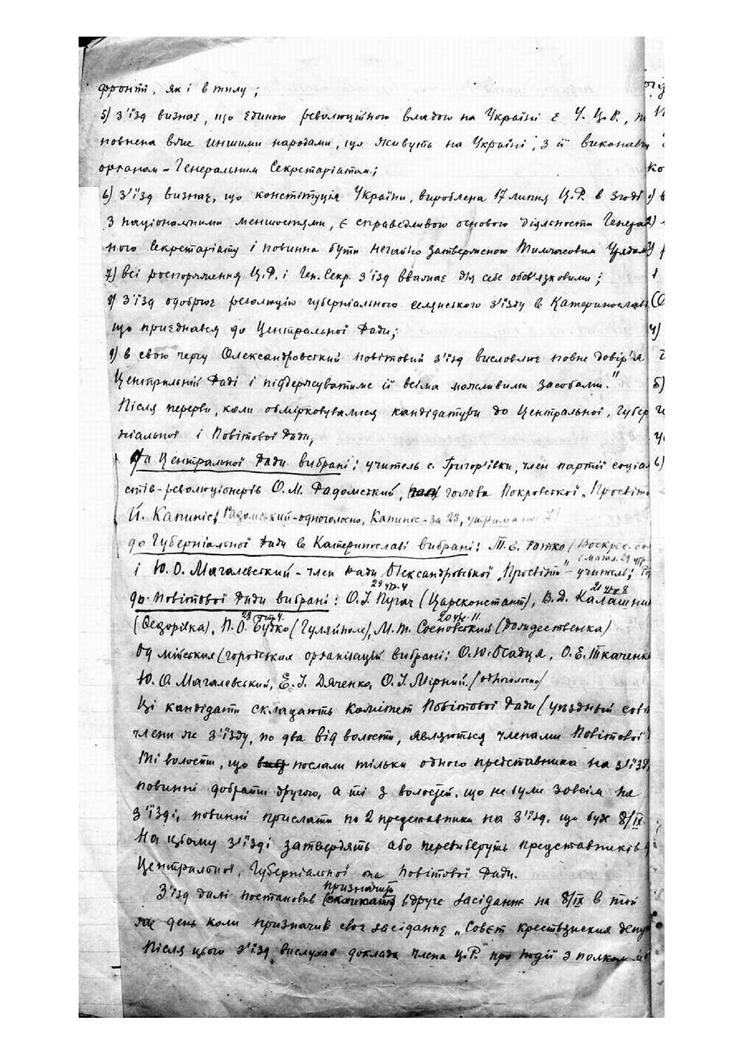 фронті, як і в тилу;
5) З'їзд визнає, що єдиною революційною владою на Україні є У.Ц.Р.,
повнена вже иншими народами, що живуть на Україні, з її виконавч
органом – Генеральним Секретаріатом;
6) З'їзд визнає, що конституція України, вироблена 17 липня Ц.Р. в згоді
з національними меншостями, є справедливою основою діяльности Генера
ного Секретаріату і повинна бути негайно затвержено Тимчасовим Урядом
7) всі роспорядження Ц.Р. і Ген. Секр. З'їзд вважає для себе обов'язковими;
8) З'їзд одобрює резолюцію губерніального селянського з'їзду в Катеринославі
що приєднався до Центральної Ради;
9) в свою чергу Олександровський повітовий з'їзд висловлює повне довір'я
Центральній Раді і піддержуватиме її всіма можливими засобами."
Після перерви, коли обмірковувалися кандідатури до Центральної, Губер
ніальної і Повітової Ради,
До Центральної Ради вибрані: учитель с. Григор'івки, член партії соціал
стів-революціонерів О.М. Радомський, голова Покровської „Просвіти
Й. Капиніс, Радомський – одноголосно, Капиніс – за 28,
до Губерніальної Ради в Катеринославі вибрані: Т.Е. Ротко (Воскрес.
і Ю.О. Магалевский – член Ради Олександровської „Просвіти" – учитель;
до Повітової Ради вибрані: О.І. Пугач (Цареконстант), В.Д. Калашни
(Федорівка), П.О. Будко (Гуляйполе), М.Т. Сосновський (Рождественка)
Од міських (городських організацій вибрані: О.Ю. Осадца, О.Е. Ткаченко
Ю.О. Магалевський, Е.І. Дяченко, О.І. Мірний. (одноголосно)
Ці кандідати складають комітет Повітової Ради (уъздный сов
члени ж з'їзду, по два від волости, являються членами Повітової
Ті волости, що послали тільки одного представника на з'їзд,
повинні добрати другого, а ті з волостей, що не були зовсім на
з'їзді, повинні прислати по 2 представника на з'їзд, що буде 8/IX
На цьому з'їзді затвердять або перевиберуть представників
Центральної, Губерніальної та Повітової Ради.
призначить
З'їзд далі постановив вдруге засідання на 8/IX в той
же день коли призначив своє засідання „Совєт крестьянских депу
Після цього з'їзд вислухав доклад члена Ц.Р. про події з полком